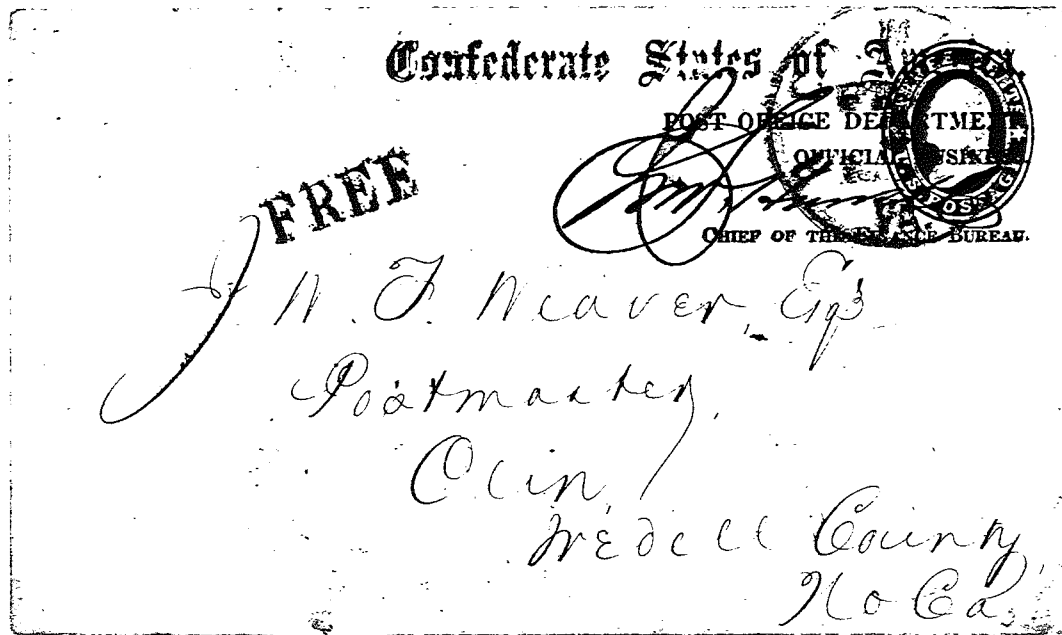 Confederate States of America.
POST OFFICE DEPARTMENT,
OFFICIAL BUSINESS.
THREE CENTS
U.S. POSTAGE
CHIEF OF THE FINANCE BUREAU.
FREE
J. W. F. Weaver, Esqr
Postmaster,
Olin,
Iredell County,
No Ca,